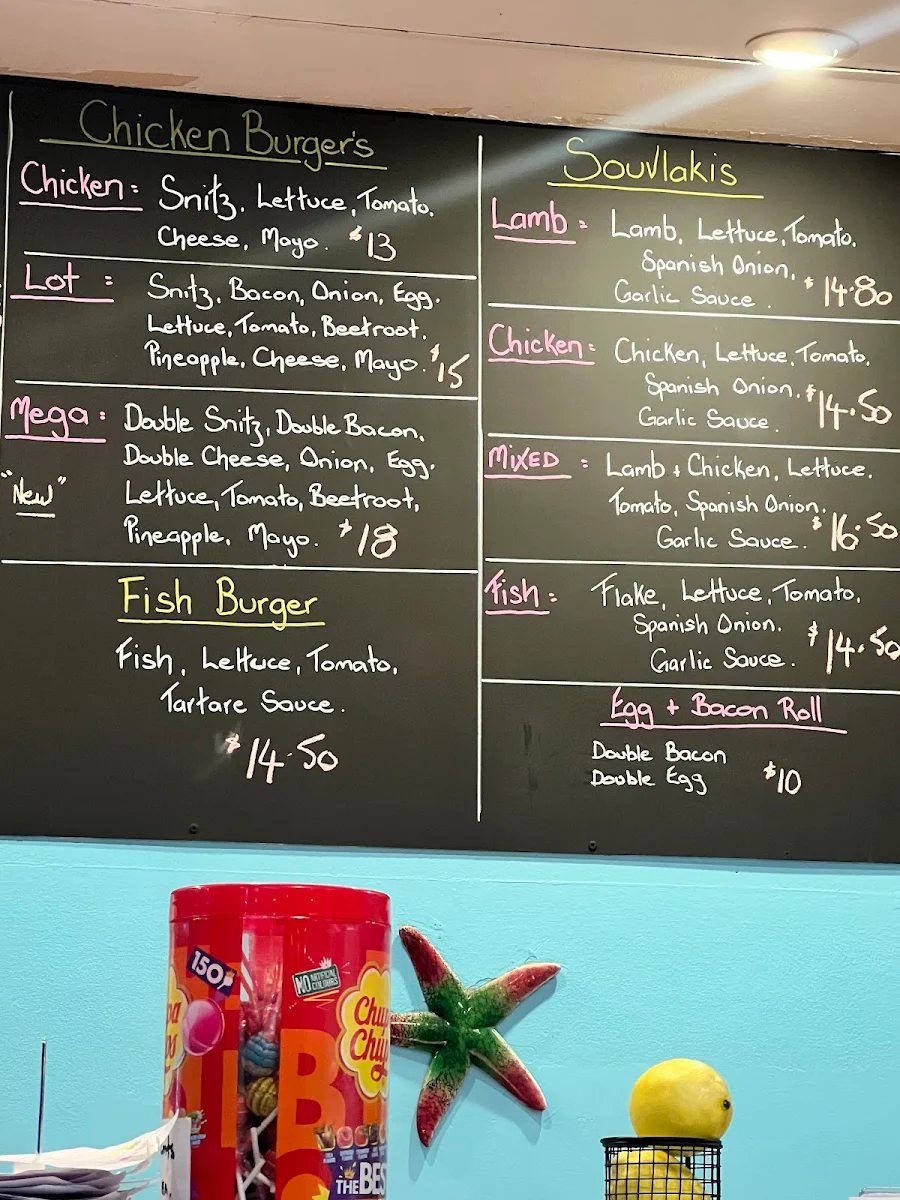 Chicken Burger's
Chicken: Snitz, Lettuce, Tomato,
Cheese, Mayo. $13
Lot : Snitz, Bacon, Onion, Egg,
Lettuce, Tomato, Beetroot,
Pineapple, Cheese, Mayo. $15
Mega: Double Snitz, Double Bacon,
Double Cheese, Onion, Egg,
"New" Lettuce, Tomato, Beetroot,
Pineapple, Mayo. $18
Fish Burger
Fish, Lettuce, Tomato,
Tartare Sauce.
$14.50
Souvlakis
Lamb: Lamb, Lettuce, Tomato,
Spanish Onion,
Garlic Sauce. $14.80
Chicken: Chicken, Lettuce, Tomato,
Spanish Onion,
Garlic Sauce. $14.50
MIXED : Lamb + Chicken, Lettuce,
Tomato, Spanish Onion,
Garlic Sauce. $16.50
Fish: Flake, Lettuce, Tomato,
Spanish Onion,
Garlic Sauce. $14.50
Egg + Bacon Roll
Double Bacon
Double Egg $10
150
NO ARTIFICIAL
COLOURS
Chu
Chu
THE BES